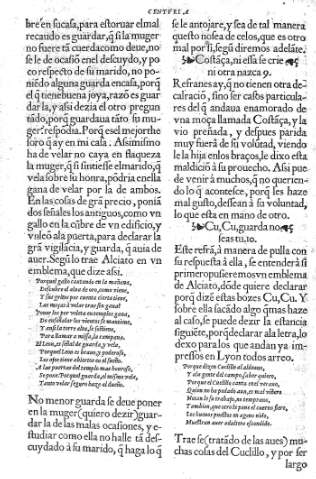 CENTVRIA
bre en su casa, para estoruar el mal
recaudo es guardar, q̃ si la muger
no fuere tã cuerda como deue, no
se le de ocasiõ en el descuydo, y po
co respecto de su marido, no po-
niẽdo alguna guarda en casa, porq̃
el q̃ tiene buena joya, razõ es guar
darla, y asi dezia el otro pregun
tãdo, porq̃ guardaua tãto su mu-
ger: respõdia. Porq̃ es el mejor the
soro q̃ ay en mi casa. Assimismo
ha de velar no caya en flaqueza
la muger, q̃ si sintiesse el marido, q̃
vela sobre su honra, põdria en ella
gana de velar por la de ambos.
En las cosas de grã precio, poniã
dos señales los antiguos, como vn
gallo en la cũbre de vn edificio, y
vn leõ a la puerta, para declarar la
grã vigilãcia, y guarda, q̃ auia de
auer. Segũ lo trae Alciato en vn
emblema, que dize assi.
Porque el gallo cantando en la mañana,
Descubre el alua de oro, como viene,
Y sus gritos por cuenta cierta tiene,
Las moças à velar tras su gana:
Ponese los por veleta en templos gana,
De enseñalar los vientos se mantiene,
Para llamar a missa, la campana.
El Leon, es señal de guarda, y vela,
Porque el Leon es brauo, y poderoso,
Los ojos tiene abiertos en al sueño.
A las puertas del templo mas honroso,
Se pone: Porque guarda, el mismo vela,
Tanto velar seguro haze al dueño.
No menor guarda se deue poner
en la muger (quiero dezir) guar-
dar la de las malas ocasiones, y e-
studiar como ella no halle tã des-
cuydado à su marido, q̃ haga lo q̃
se le antojare, y sea de tal manera
questo no sea de celos, que es otro
mal por si, segũ diremos adelãte.
Costãça, ni essa se crie
ni otra nazca 9.
Refranes ay, q̃ no tienen otra de-
claraciõ, sino ser casos particula-
res del q̃ andaua enamorado de
vna moça llamada Costãça, y la
vio preñada, y despues parida
muy fuera de su volũtad, viendo
le la hija en los braços, le dixo esta
maldiciõ à su prouecho. Assi pue
de venir à muchos, q̃ no querien-
do lo q̃ acontesce, porq̃ les haze
mal gusto, dessean à su voluntad,
lo que esta en mano de otro.
Cu, Cu, guarda no
seas tu, 10.
Este refrã, à manera de pulla con
su respuesta à ella, se entenderà si
primero pusieremos vn emblema
de Alciato, dõde quiere declarar
porq̃ dizẽ estas bozes Cu, Cu. Y
sobre ella sacãdo algo q̃ mas haze
al caso, se puede dezir la estancia
siguiẽte, porq̃ declarar ala letra, lo
dexo para los que andan ya im-
pressos en Lyon todos arreo.
Porque digan Cuclillo al aldeano,
Y ala gente del campo, saber quiero,
Porque el Cuclillo canta enel verano,
Quien no ha podado aun, es mal vinero
Mozan le su trabajo, no temprano,
Tambien, que otro le pone el cuerno fiero,
Los hueuos puestos en ageno nido,
Muestran auer adulterio escondido.
Trae se (tratãdo de las aues) mu-
chas cosas del Cuclillo, y por ser
largo